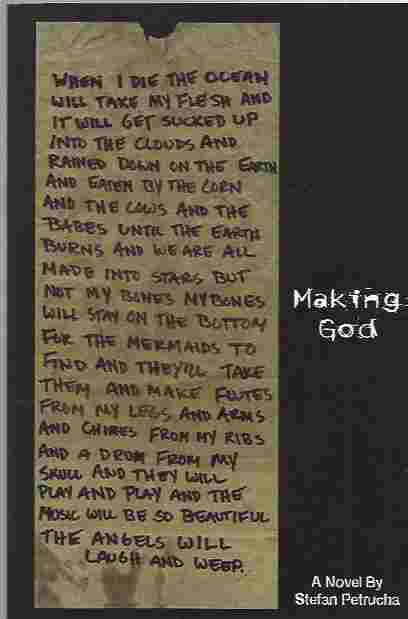 WHEN I DIE THE OCEAN
WILL TAKE MY FLESH AND
IT WILL GET SUCKED UP
INTO THE CLOUDS AND
RAINED DOWN ON THE EARTH
AND EATEN BY THE CORN
AND THE COWS AND THE
BABES UNTIL THE EARTH
BURNS AND WE ARE ALL
MADE INTO STARS BUT
NOT MY BONES MY BONES
WILL STAY ON THE BOTTOM
FOR THE MERMAIDS TO
FIND AND THEY'LL TAKE
THEM AND MAKE FLUTES
FROM MY LEGS AND ARMS
AND CHIMES FROM MY RIBS
AND A DRUM FROM MY
SKULL AND THEY WILL
PLAY AND PLAY AND THE
MUSIC WILL BE SO BEAUTIFUL
THE ANGELS WILL
LAUGH AND WEEP.
Making
God
A Novel By
Stefan Petrucha